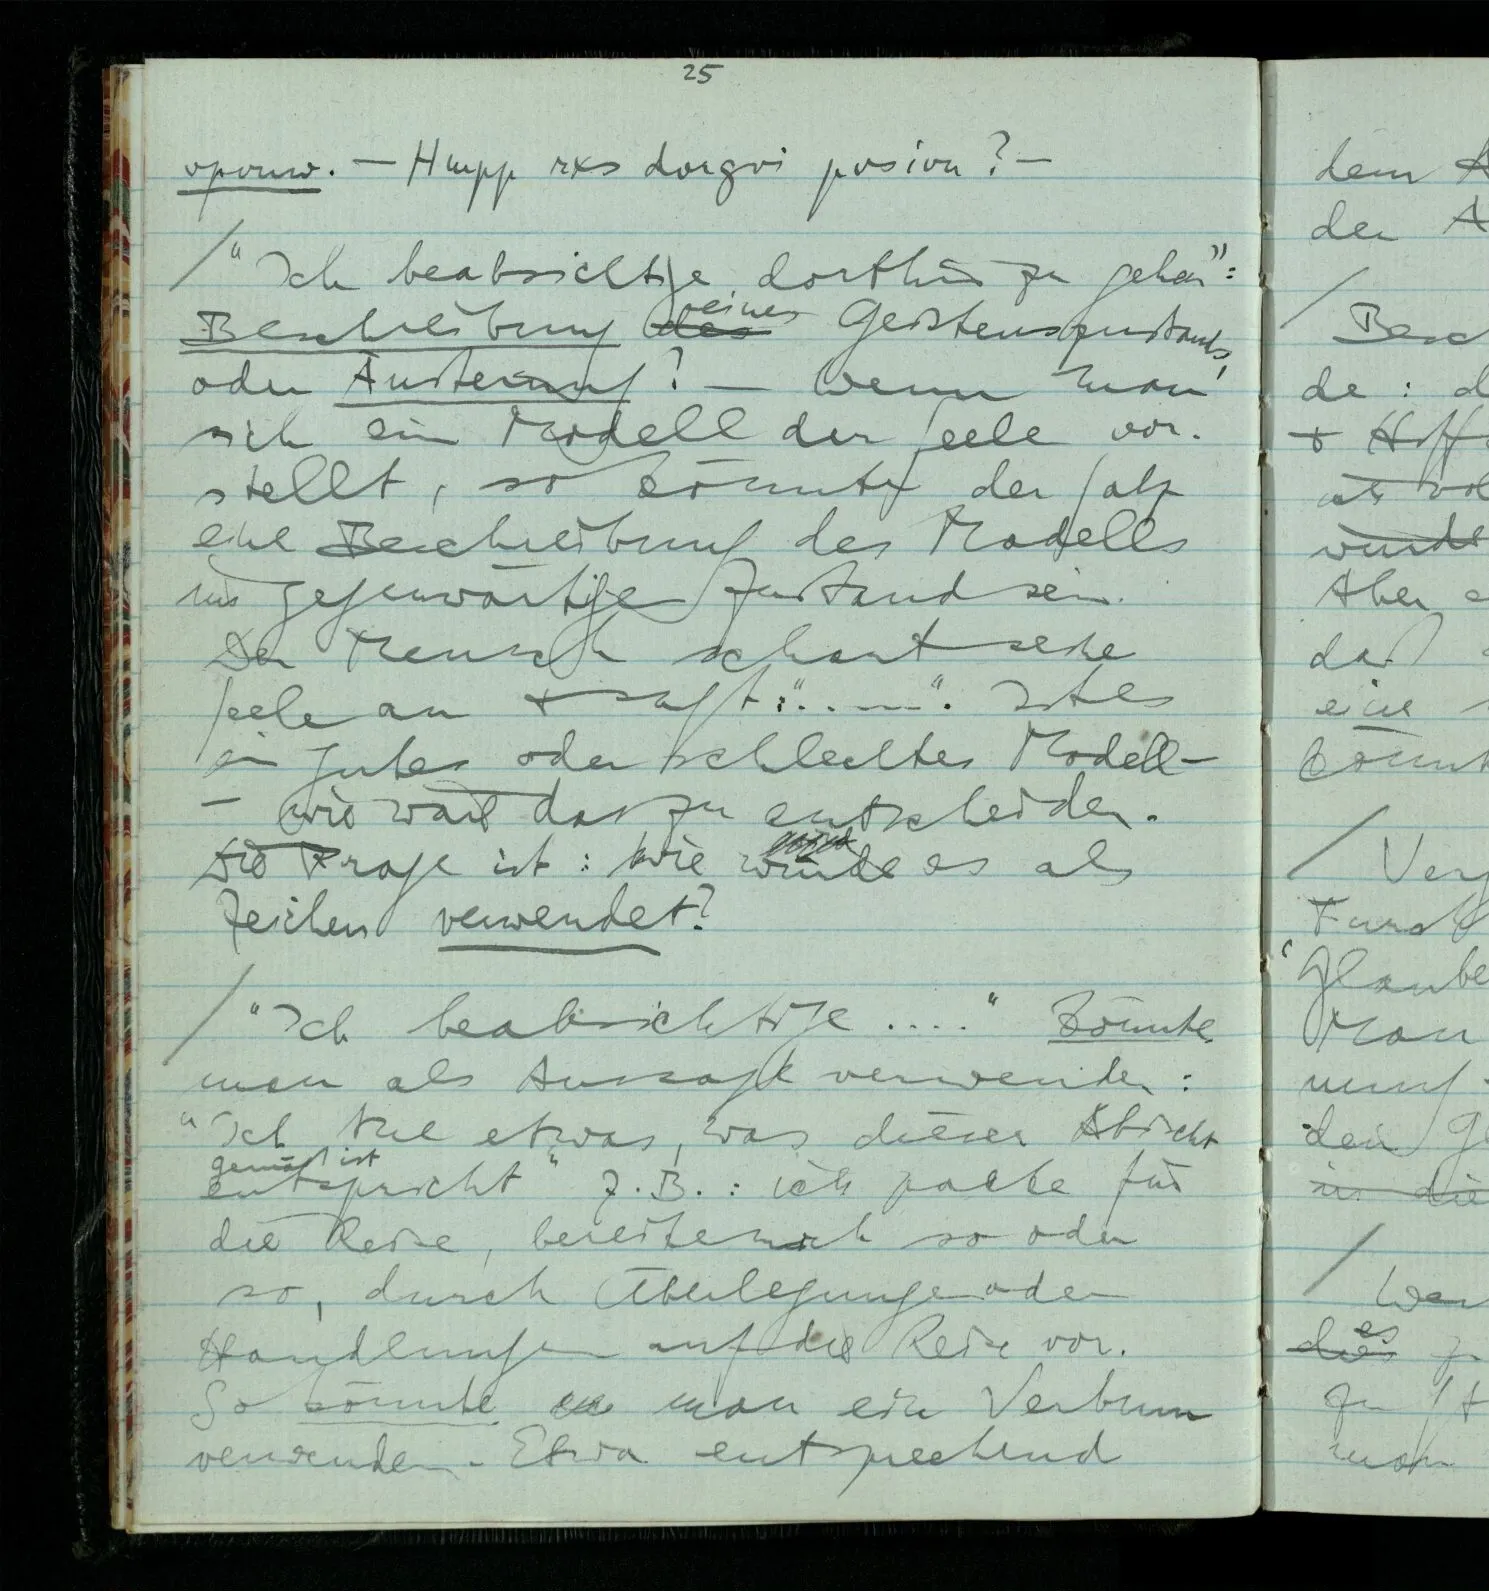 25
opouw. — Hmpp rxs dorgvi posivn? —
/ "Ich beabsichtige dorthin zu gehen":
Beschreibung des eines Geisteszustands,
oder Äußerung? — Wenn man
sich ein Modell der Seele vor-
stellt, so könnte der Satz
eine Beschreibung des Modells
im gegenwärtigen Zustand sein.
Der Mensch schaut seine
Seele an + sagt: ".....". Ist es
ein gutes oder schlechtes Modell —
— wie wäre das zu entscheiden.
Die Frage ist: Wie würde es als
Zeichen verwendet?
/ "Ich beabsichtige ...." könnte
man als Aussage verwenden:
"Ich tue etwas, was dieser Absicht
gemäß ist
entspricht" z.B.: ich packe für
die Reise, bereite mich so oder
so, durch Überlegungen oder
Handlungen auf die Reise vor.
So könnte man ein Verbum
verwenden. Etwa entsprechend
dem
der
/ Besc
de : d
+ Hoff
als vol
würde
Aber
daß
eine
könnt
/ Verg
Furch
"Glaube
Man
nung
den
in die
/ Wen
dies es